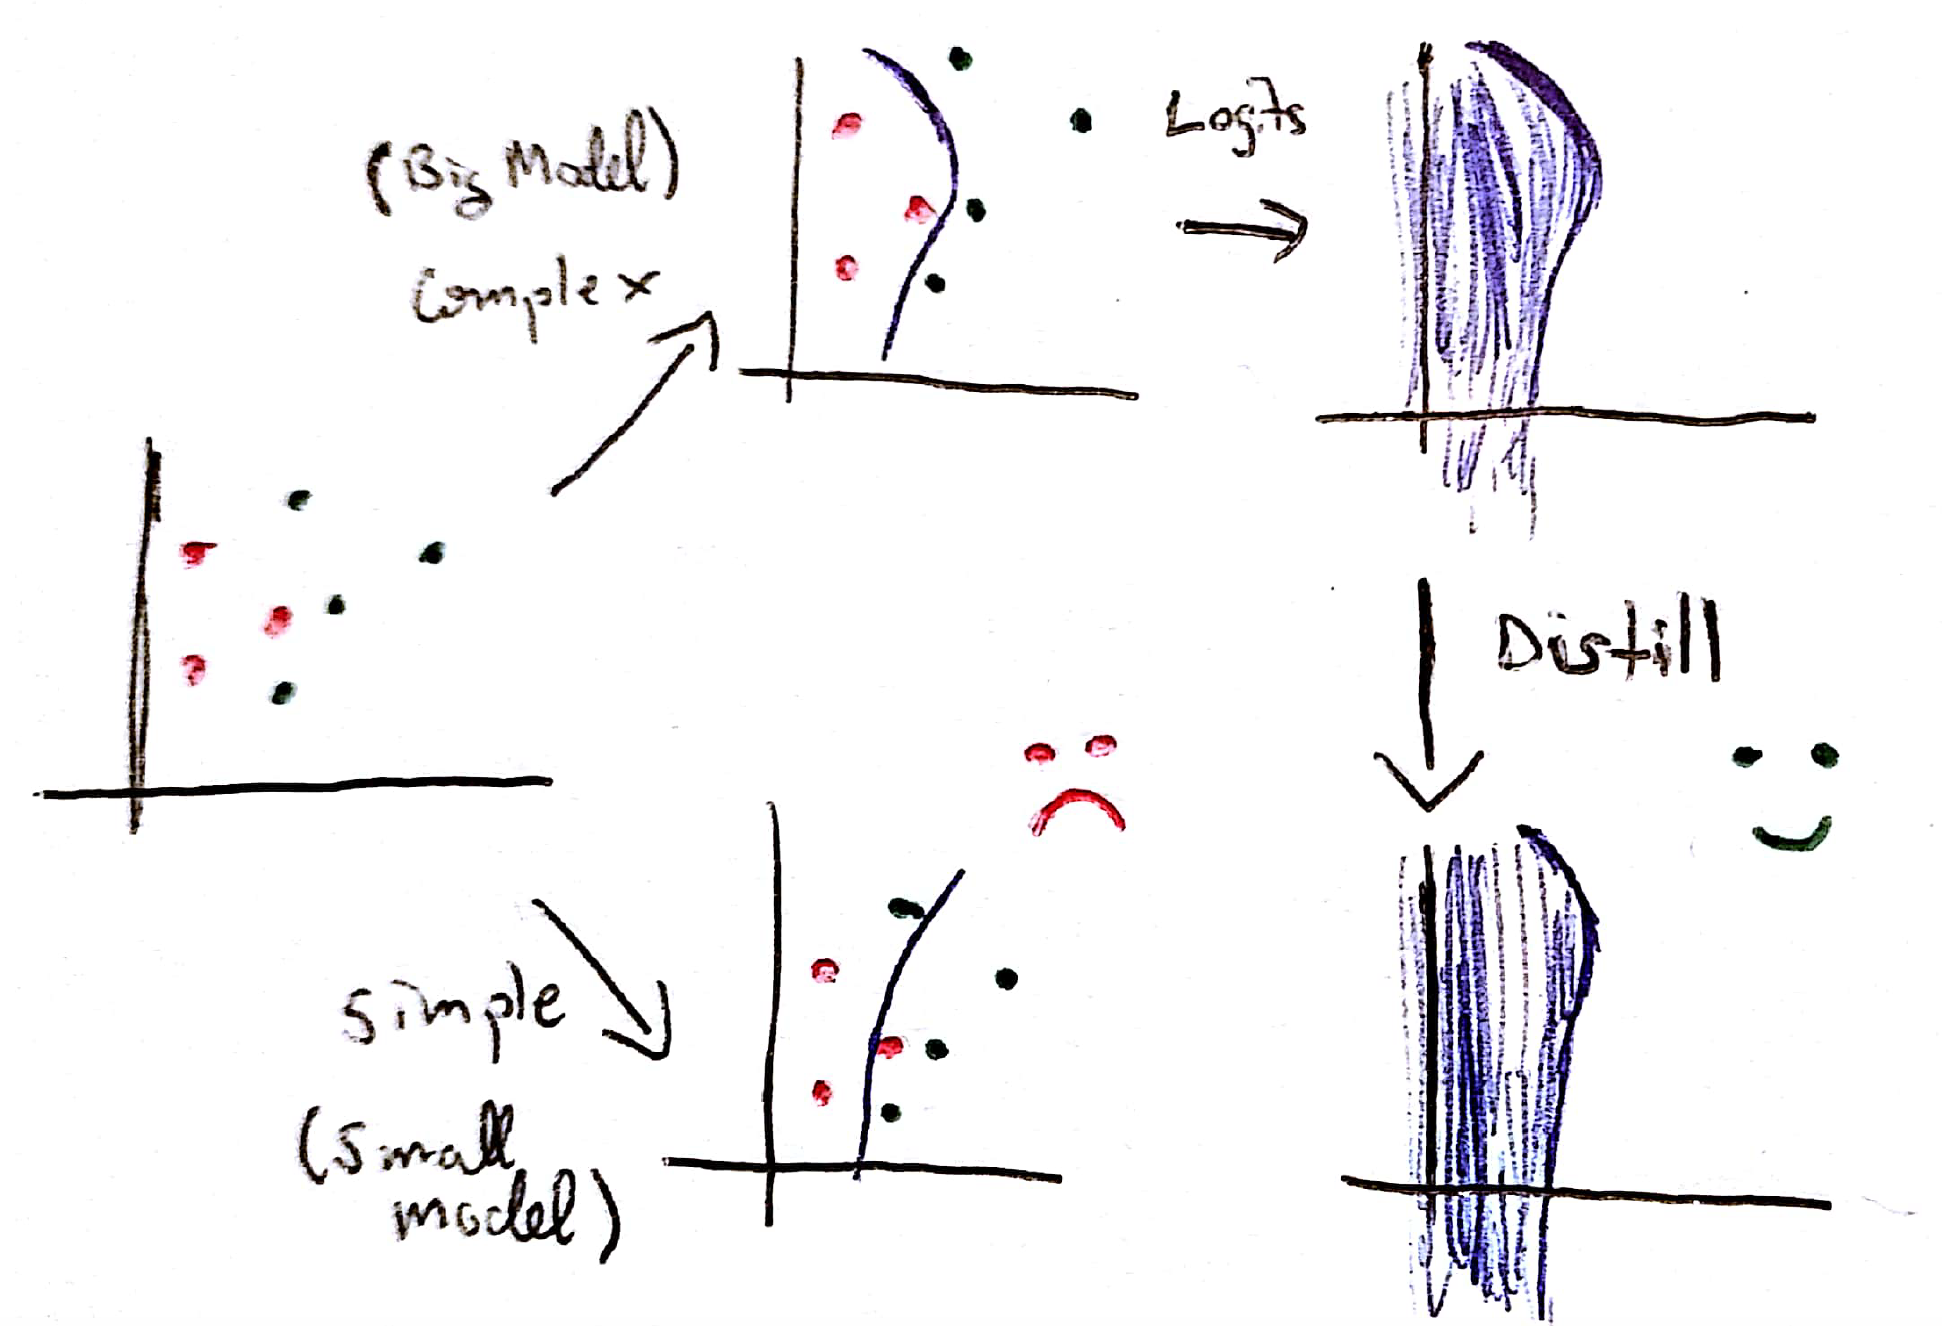 (Big Model)
Complex
Logits
Distill
Simple
(Small
model)